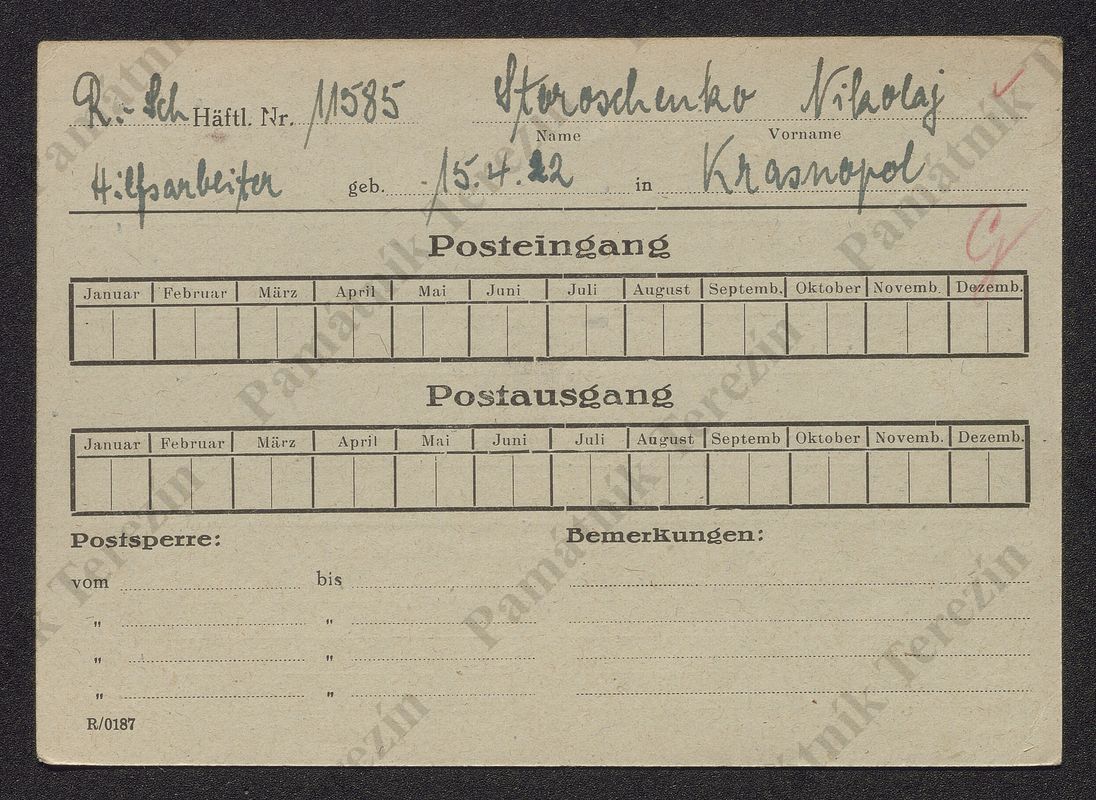 R.-Sch Häftl. Nr. 11585 Storoschenko Nikolaj
Name Vorname
Hilfsarbeiter geb. 15.4.22 in Krasnopol
Posteingang
Januar Februar März April Mai Juni Juli August Septemb. Oktober Novemb. Dezemb.
Postausgang
Januar Februar März April Mai Juni Juli August Septemb Oktober Novemb. Dezemb.
Postsperre: Bemerkungen:
vom bis
" "
" "
" "
R/0187
Památník Terezín